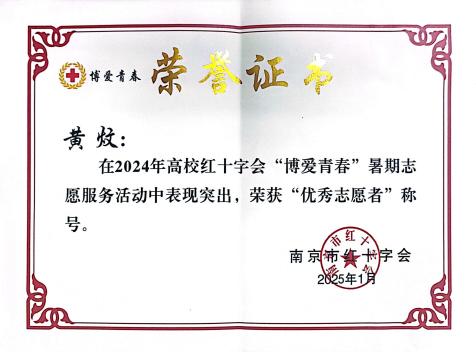 博爱青春 荣誉证书
黄炆：
在2024年高校红十字会“博爱青春”暑期志
愿服务活动中表现突出，荣获“优秀志愿者”称
号。
南京市红十字会
2025年1月
南京市红十字会